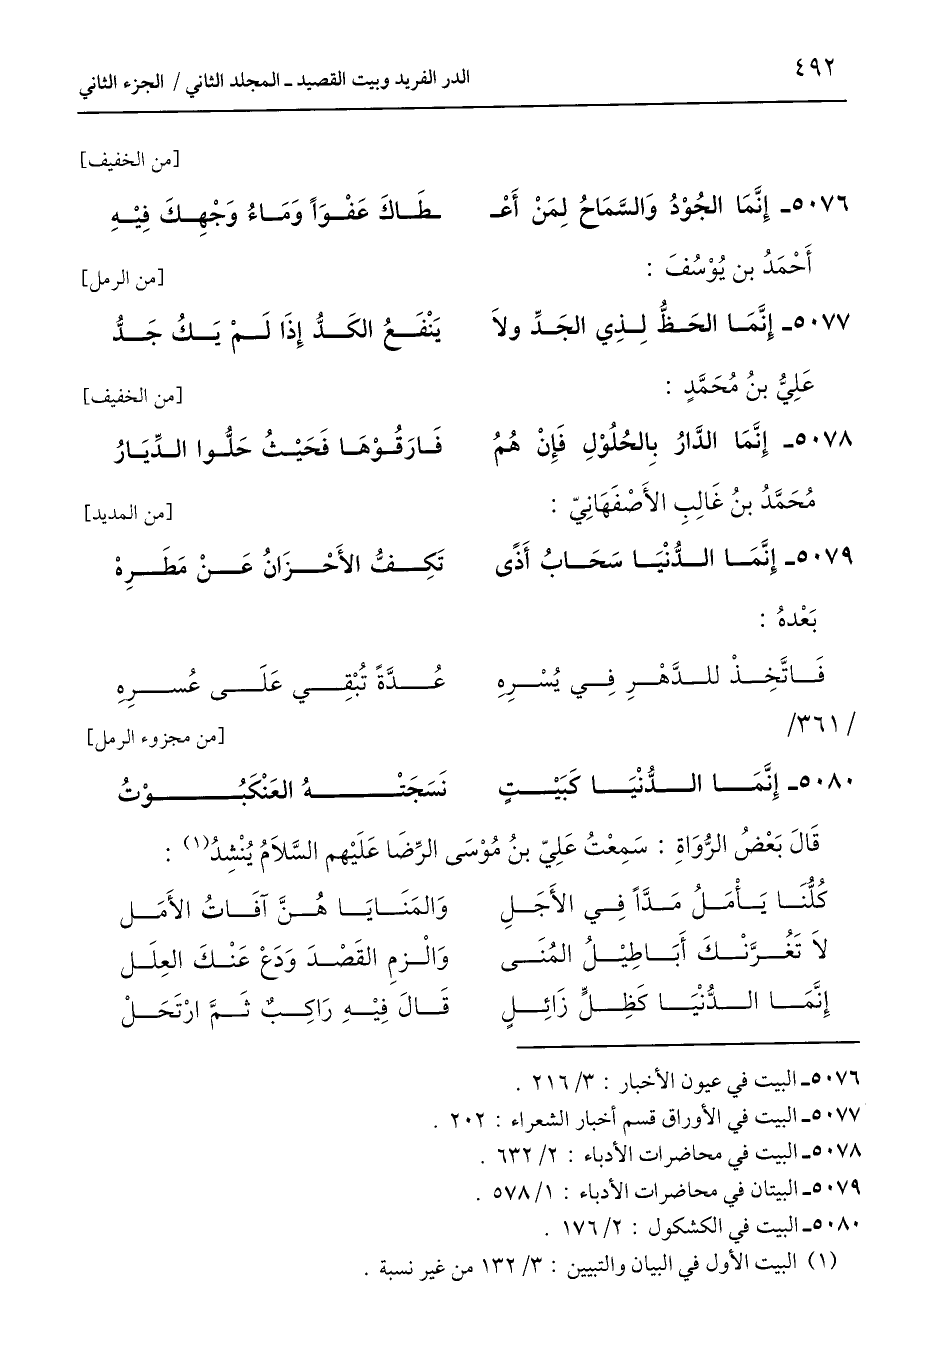 ٤٩٢ الدر الفريد وبيت القصيد ـ المجلد الثاني / الجزء الثاني
[من الخفيف]
٥٠٧٦ـ إِنَّمَا الجُوْدُ وَالسَّمَاحُ لِمَنْ أَعْـ ـطَاكَ عَفْوَاً وَمَاءُ وَجْهِكَ فِيْهِ
أَحْمَدُ بن يُوْسُفَ : [من الرمل]
٥٠٧٧ـ إِنَّمَا الحَظُّ لِذِي الجَدِّ ولاَ يَنْفَعُ الكَدُّ إِذَا لَمْ يَكُ جَدُّ
عَلِيُّ بنُ مُحَمَّدٍ : [من الخفيف]
٥٠٧٨ـ إِنَّمَا الدَّارُ بِالحُلُوْلِ فَإِنْ هُمُ فَارَقُوْهَا فَحَيْثُ حَلُّوا الدِّيَارُ
مُحَمَّدُ بنُ غَالِبِ الأَصْفَهَانِيّ : [من المديد]
٥٠٧٩ـ إِنَّمَا الدُّنْيَا سَحَابُ أَذًى تَكِفُّ الأَحْزَانُ عَنْ مَطَرِهْ
بَعْدهُ :
فَاتَّخِذْ للدَّهْرِ فِي يُسْرِهِ عُدَّةً تُبْقِي عَلَى عُسرِهِ
/٣٦١/ [من مجزوء الرمل]
٥٠٨٠ـ إِنَّمَا الدُّنْيَا كَبَيْتٍ نَسَجَتْهُ العَنْكَبُوْتُ
قَالَ بَعْضُ الرُّوَاةِ : سَمِعْتُ عَلِيّ بنُ مُوْسَى الرِّضَا عَلَيْهِم السَّلاَمُ يُنْشِدُ(١) :
كُلُّنَا يَأْمَلُ مَدَّاً فِي الأَجَلِ وَالمَنَايَا هُنَّ آفَاتُ الأَمَلِ
لاَ تَغُرَّنْكَ أَبَاطِيْلُ المُنَى وَالْزِمِ القَصْدَ وَدَعْ عَنْكَ العِلَلِ
إِنَّمَا الدُّنْيَا كَظِلٍّ زَائِلٍ قَالَ فِيْهِ رَاكِبٌ ثَمَّ ارْتَحَلْ
٥٠٧٦ـ البيت في عيون الأخبار : ٣/ ٢١٦ .
٥٠٧٧ـ البيت في الأوراق قسم أخبار الشعراء : ٢٠٢ .
٥٠٧٨ـ البيت في محاضرات الأدباء : ٢/ ٦٣٢ .
٥٠٧٩ـ البيتان في محاضرات الأدباء : ١/ ٥٧٨ .
٥٠٨٠ـ البيت في الكشكول : ٢/ ١٧٦ .
(١) البيت الأول في البيان والتبيين : ٣/ ١٣٢ من غير نسبة .